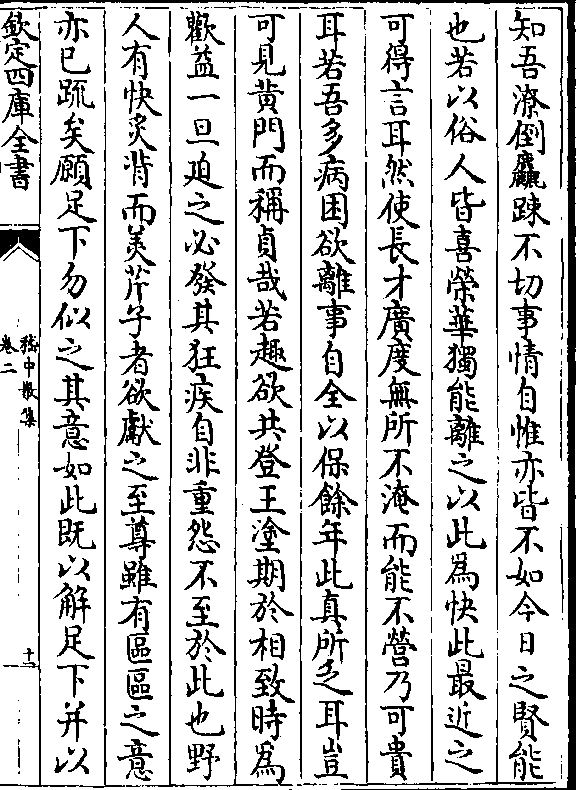 知吾潦倒麤踈不切事情自惟亦皆不如今日之賢能
也若以俗人皆喜榮華獨能離之以此為快此最近之
可得言耳然使長才廣度無所不淹而能不營乃可貴
耳若吾多病困欲離事自全以保餘年此真所乏耳豈
可見黄門而稱貞哉若趣欲共登王塗期於相致時為
歡益一旦迫之必發其狂疾自非重怨不至於此也野
人有快炙背而美芹子者欲獻之至尊雖有區區之意
亦已疏矣願足下勿似之其意如此既以解足下并以
欽定四庫全書
嵇中散集
卷二
十一